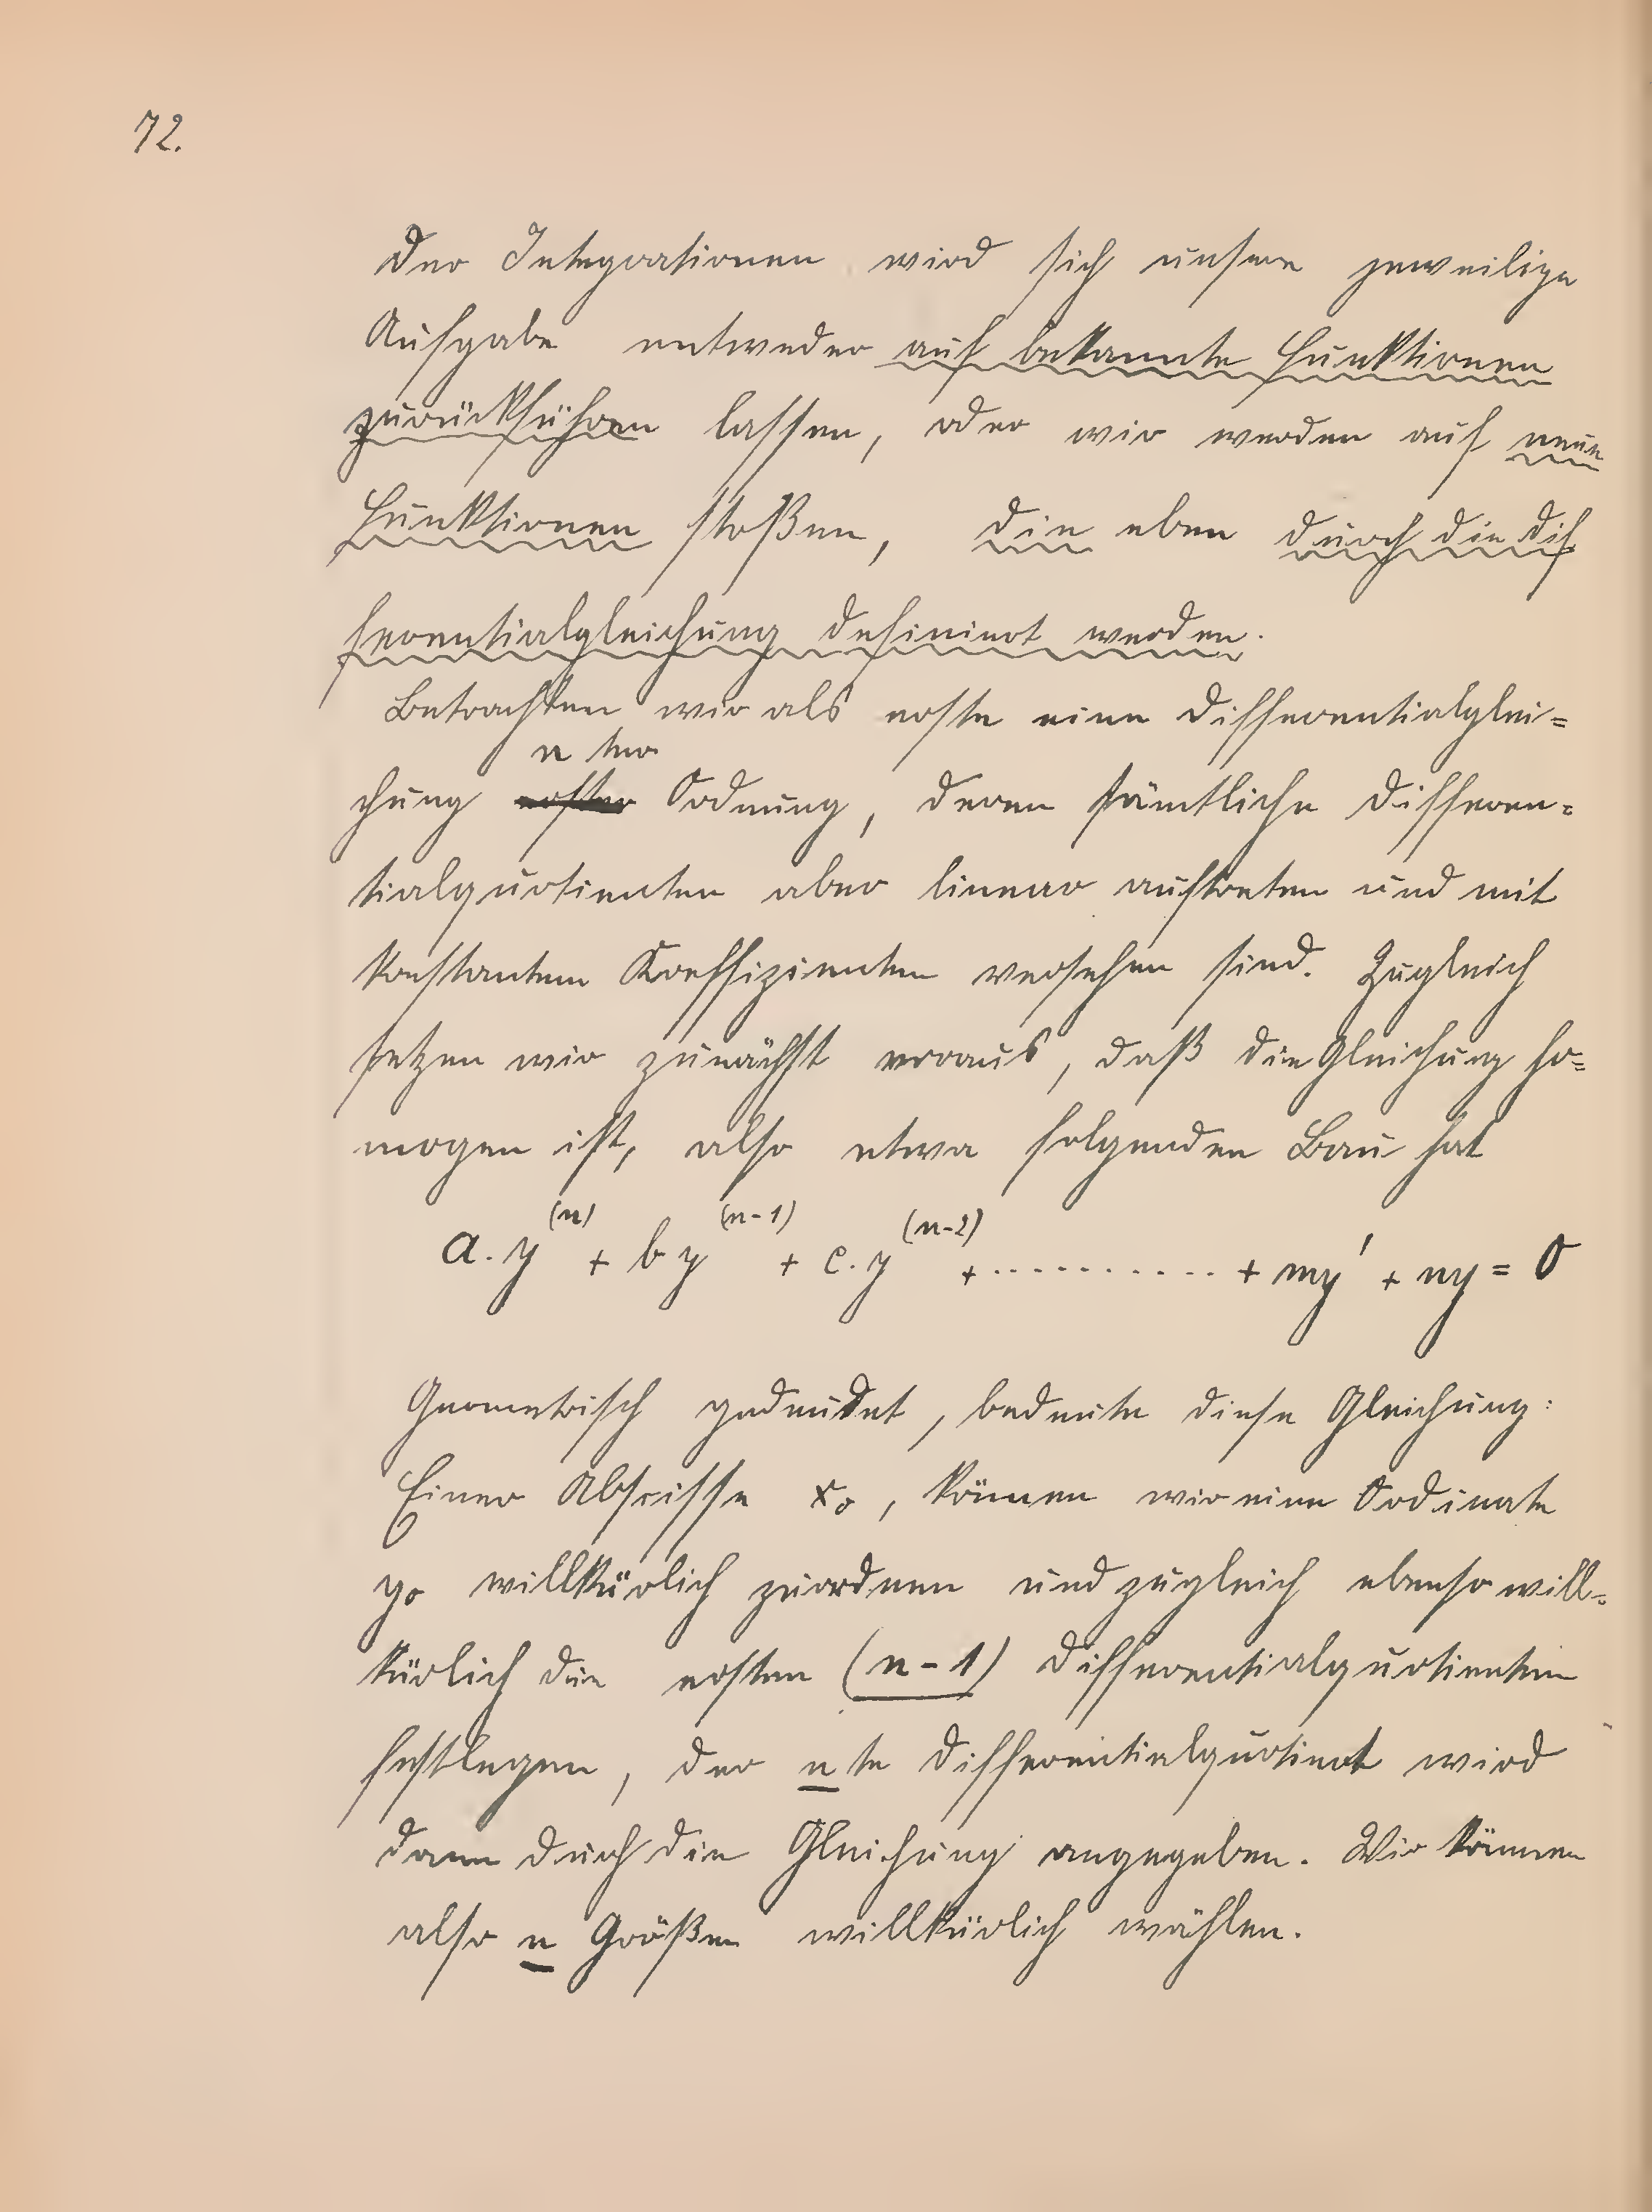 72.
der Integrationen wird sich unsere jeweilige
Aufgabe entweder auf bekannte Funktionen
zurückführen lassen, oder wir werden auf neue
Funktionen stoßen, die eben durch die Dif
ferentialgleichung definiert werden.
Betrachten wir als erste eine Differentialglei=
n ter
chung erster Ordnung, deren sämtliche Differen=
tialquotienten aber linear auftreten und mit
konstanten Koeffizienten versehen sind. Zugleich
setzen wir zunächst voraus, daß die Gleichung ho=
mogen ist, also etwa folgenden Bau hat
a. y^(n) + b y^(n-1) + c. y^(n-2) + ........... + my' + ny = 0
Geometrisch gedeutet, bedeute diese Gleichung:
Einer Abscisse x₀, können wir eine Ordinate
y₀ willkürlich zuordnen und zugleich ebenso will=
kürlich die ersten (n-1) Differentialquotienten
festlegen, der n te Differentialquotient wird
dann durch die Gleichung angegeben. Wir können
also n Größen willkürlich wählen.